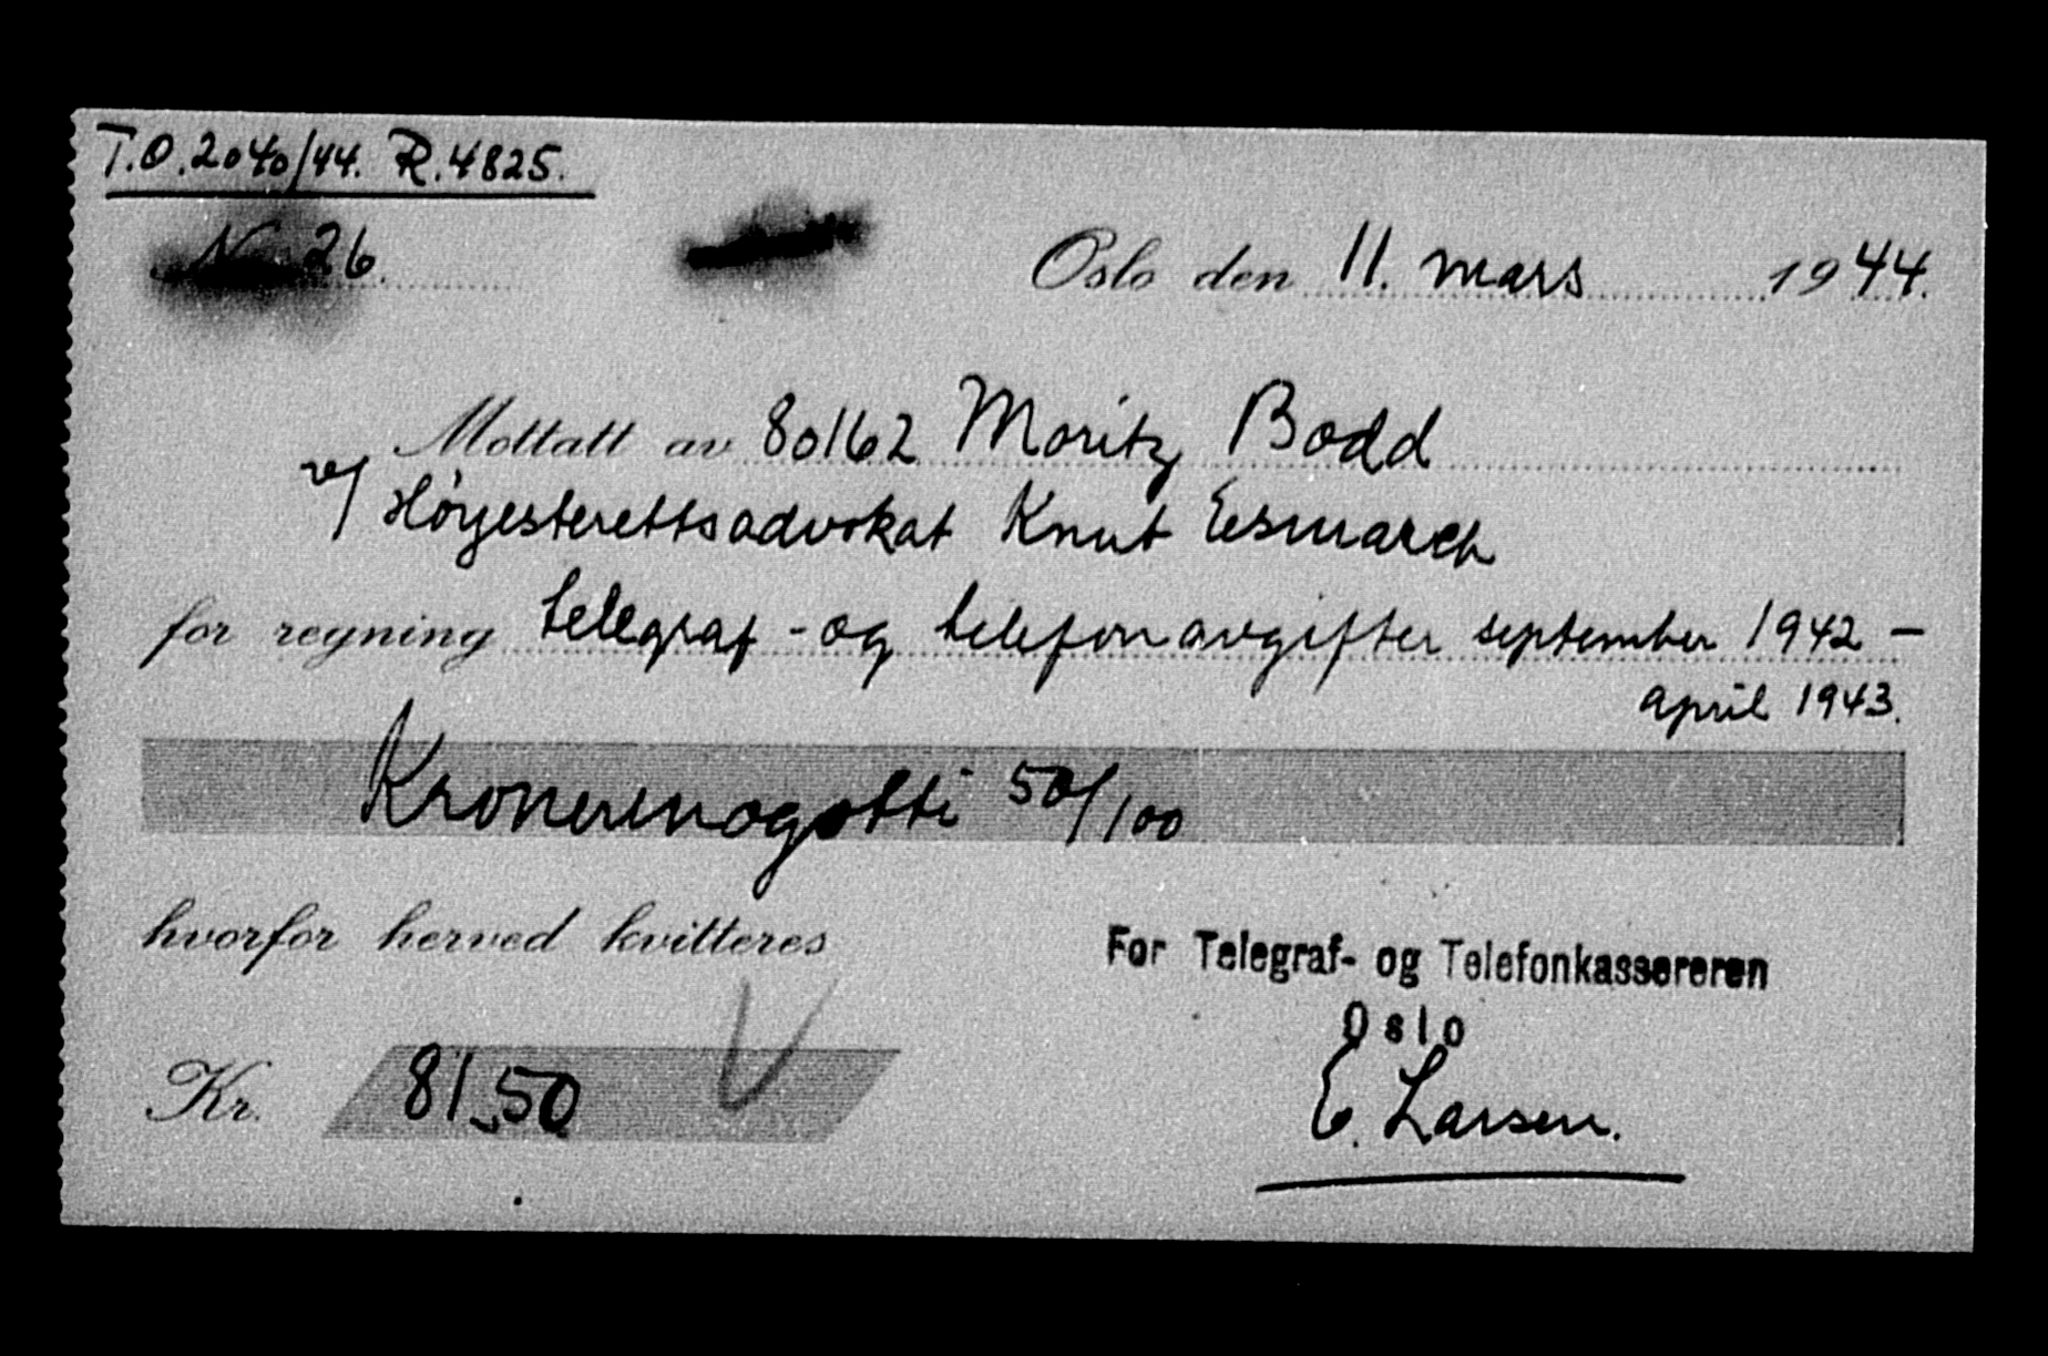 T.O.2040/44. R.4825.
No 26.
Oslo den 11. mars 1944.
Mottatt av 80162 Moritz Bodd
v/ Høyesterettsadvokat Knut Esmarch
for regning telegraf - og telefonavgifter september 1942 –
april 1943.
Kronerenogotti 50/100
hvorfor herved kvitteres
For Telegraf- og Telefonkassereren
Oslo
Kr. 81,50
E. Larsen.